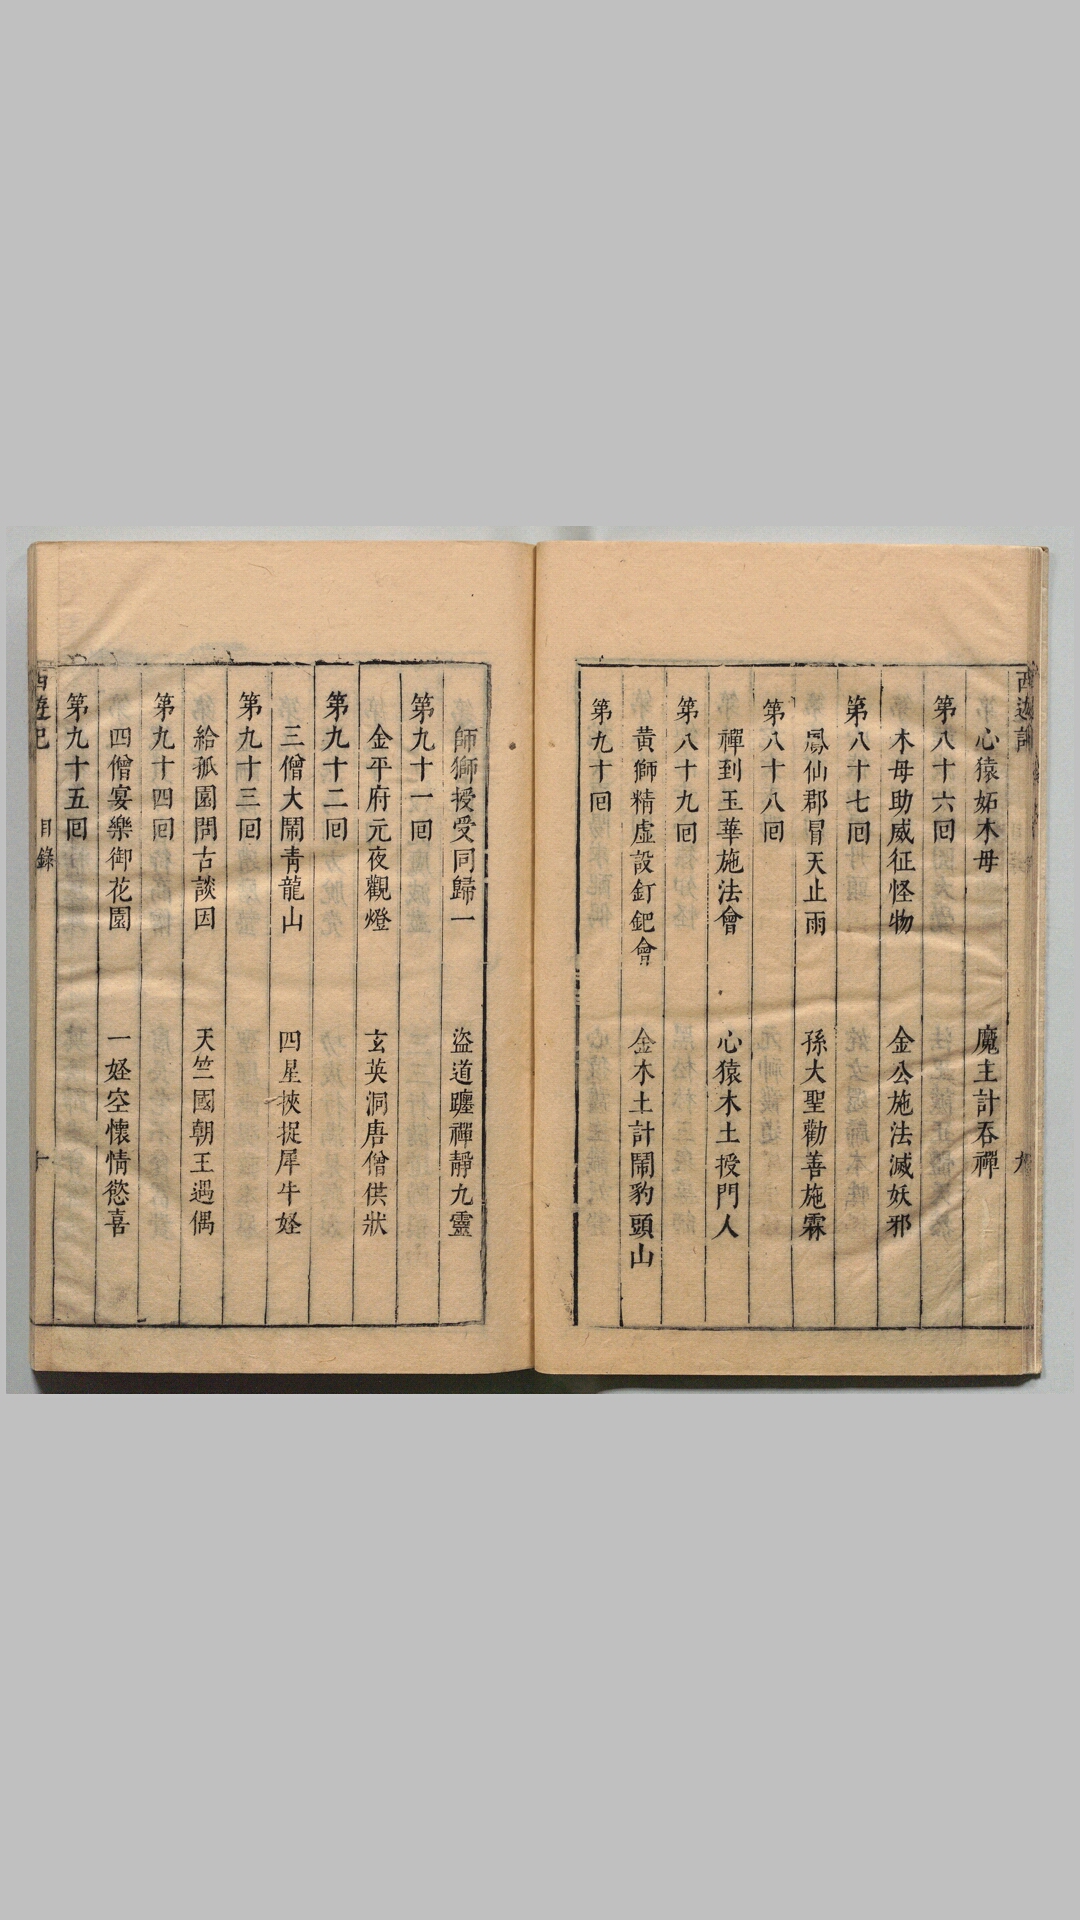 西遊記 九
心猿妬木母 魔主計吞禪
第八十六回
木母助威征怪物 金公施法滅妖邪
第八十七回
鳳仙郡冒天止雨 孫大聖勸善施霖
第八十八回
禪到玉華施法會 心猿木土授門人
第八十九回
黄獅精虛設釘鈀會 金木土計鬧豹頭山
第九十回
師獅授受同歸一 盜道躔禪靜九靈
第九十一回
金平府元夜觀燈 玄英洞唐僧供狀
第九十二回
三僧大鬧靑龍山 四星挾捉犀牛𢙨
第九十三回
給孤園問古談因 天竺國朝王遇偶
第九十四回
四僧宴樂御花園 一𢙨空懷情慾喜
第九十五回
西遊記 目錄 十